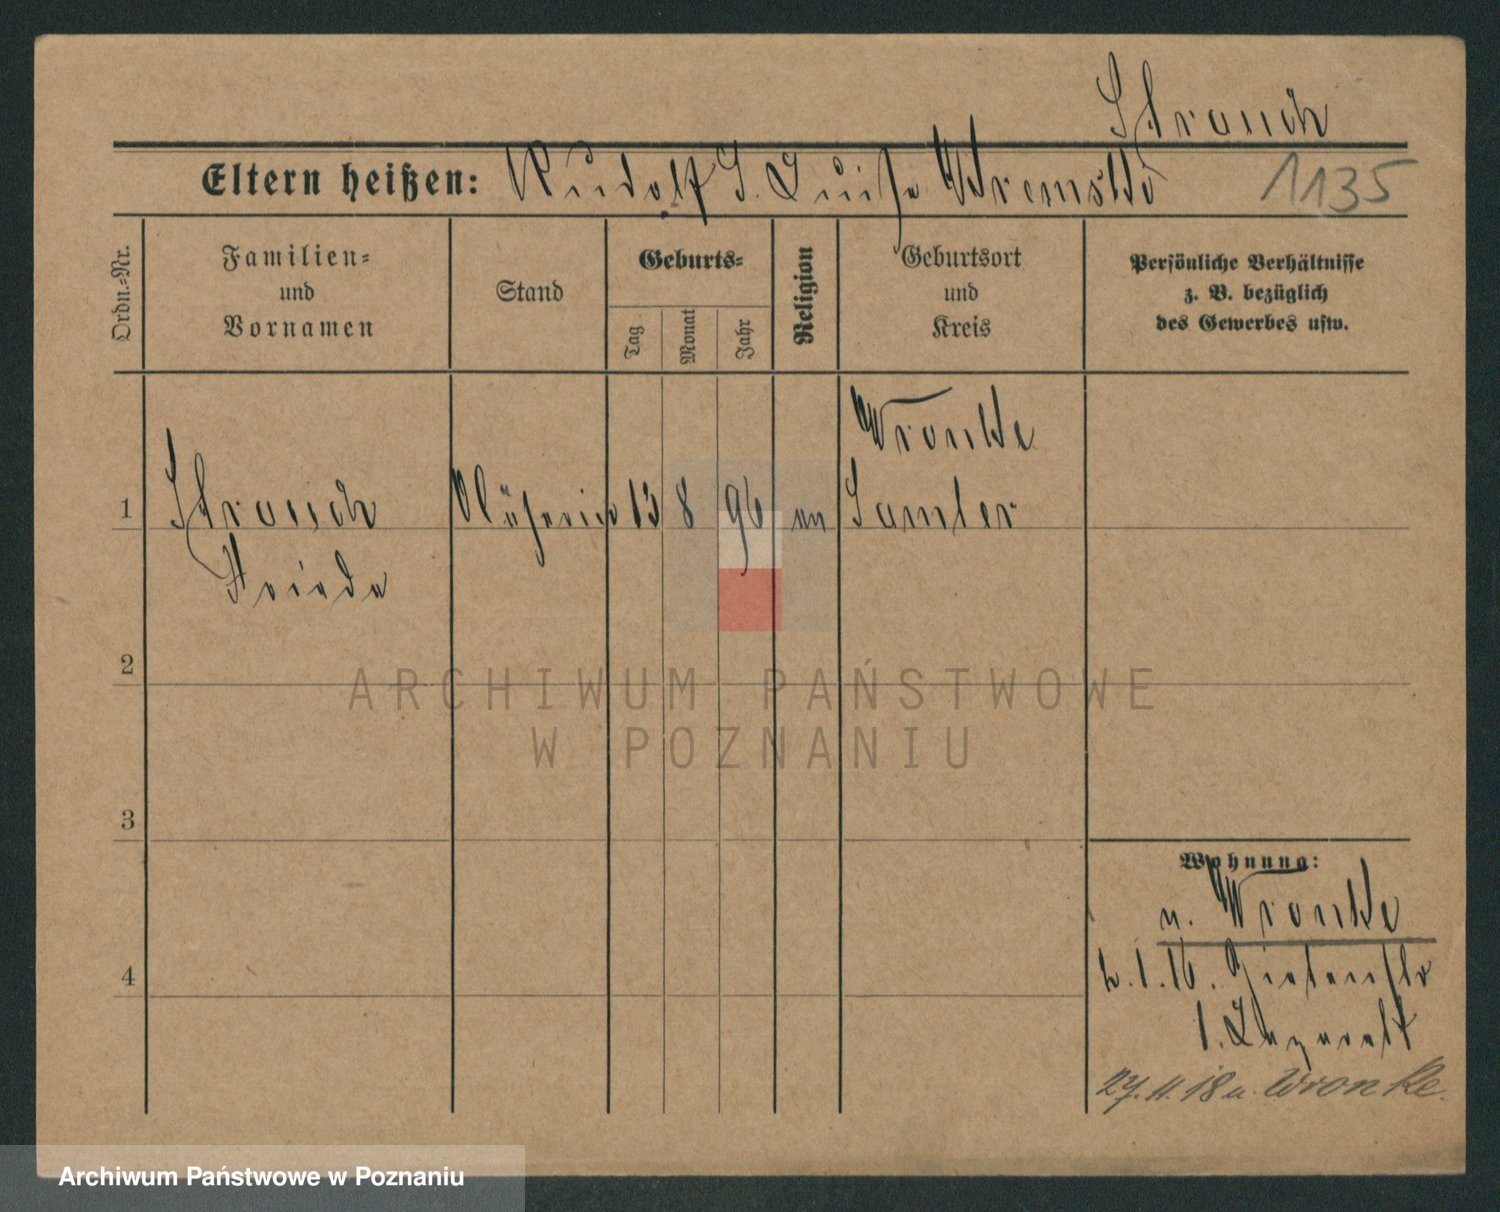 Strauch
Eltern heißen: Rudolf S. Luise
1135
Ordn.-Nr.
Familien-
und
Vornamen
Stand
Geburts-
Tag
Monat
Jahr
Religion
Geburtsort
und
Kreis
Persönliche Verhältnisse
z. B. bezüglich
des Gewerbes usw.
Wronke
1 Strauch Näherin 13 8 96 ev Samter
Frieda
2
ARCHIWUM PAŃSTWOWE
W POZNANIU
3
4
Wohnung:
n. Wronke
2.1.16. Zietenstr
1. Lazarett
27.11.18 n. Wronke
Archiwum Państwowe w Poznaniu